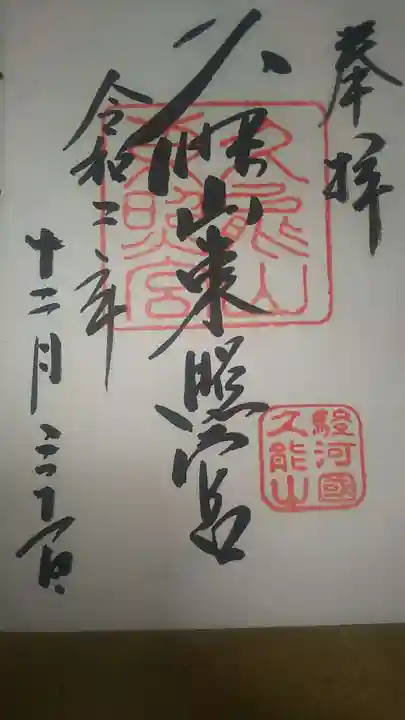 奉拝
久能山東照宮
令和二年
十二月二十一日
久能山
東照宮
駿河國
久能山